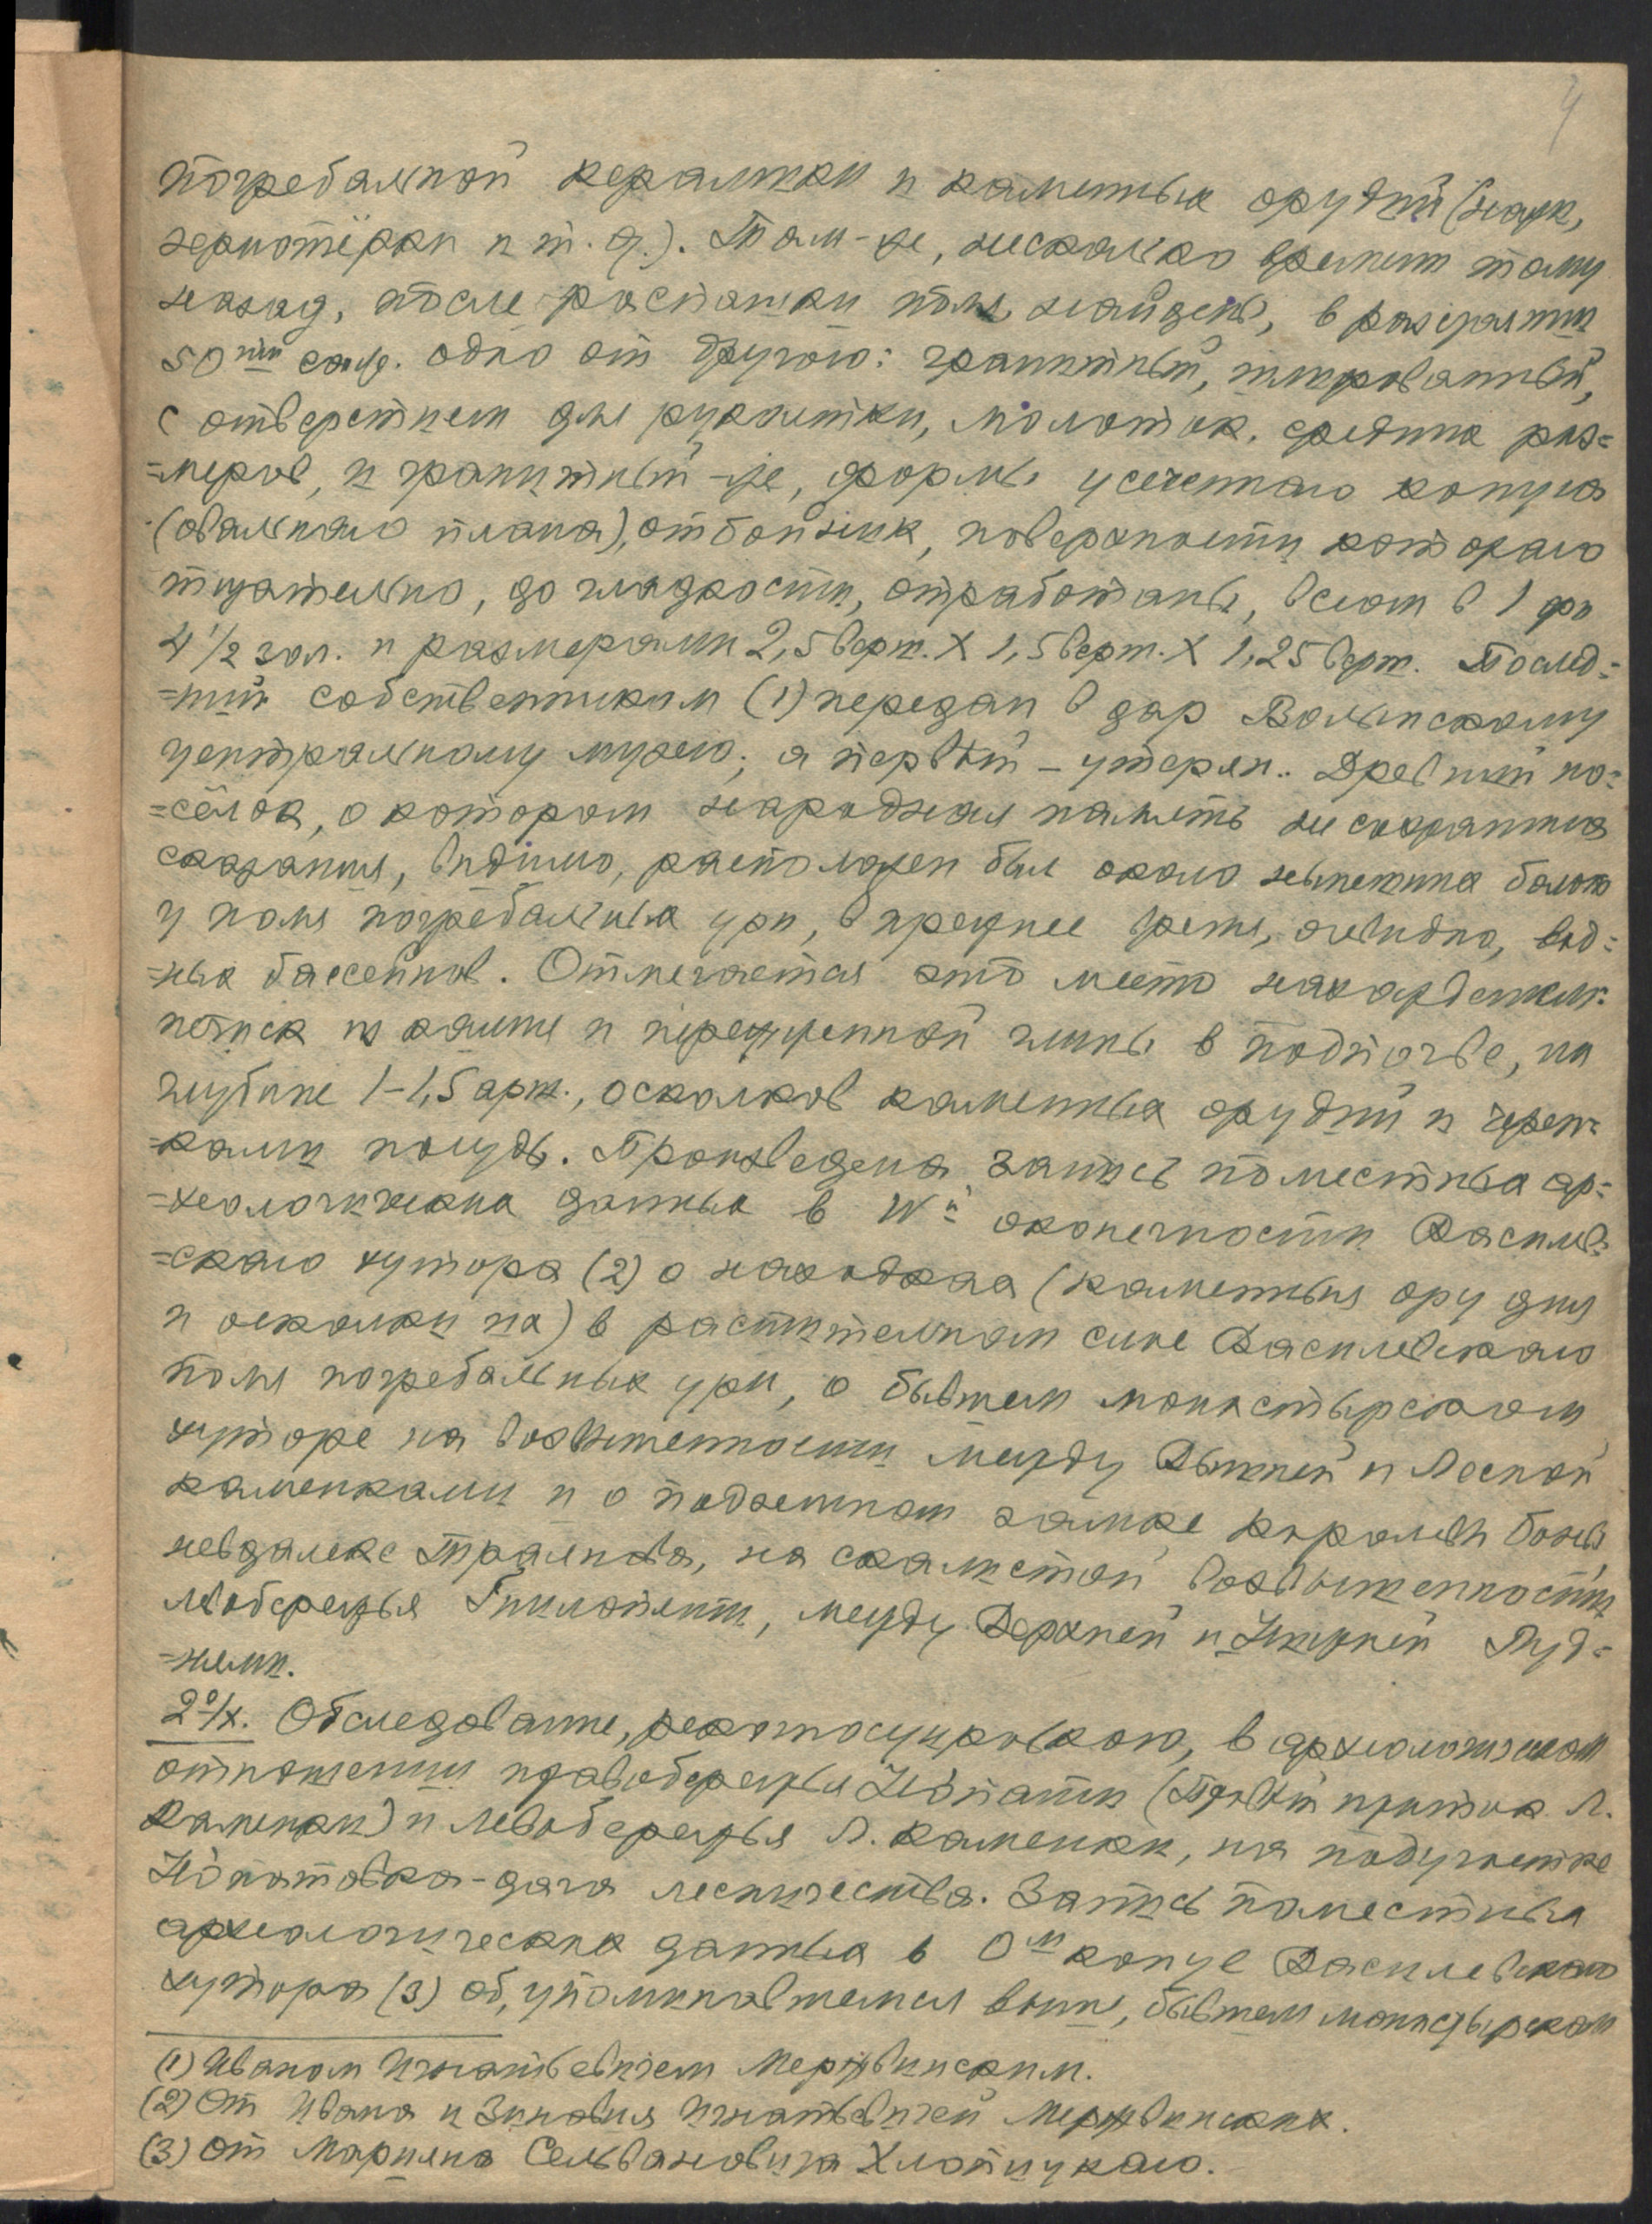 4
погребальной керамики и каменных орудий (наук,
зернотёрки и т. д.). Там-же, несколько времени тому
назад, после распашки поля, найдены, в разстоянии
50ти саж. одно от другого: гранитный, шлифованный,
с отверстием для рукоятки, молоток, средних раз=
=меров, и гранитный-же, формы усеченного конуса
(овального плана), отбойник, поверхности которого
тщательно, до гладкости, отработаны, весом в 1 фн
4 1/2 зол. и размерами 2,5 верш. X 1,5 верш. X 1,25 верш. Послед=
=ний собственником (1) передан в дар Волынскому
центральному музею; а первый – утерян. Древний по=
=сёлок, о котором народная память не сохранила
сказания, видимо, расположен был около нынешних болот
у поля погребальных урн, в прежнее время, очевидно, вод=
=ных бассейнов. Отмечается это место находками
из камня и пережженной глины в подпочве, на
глубине 1–1,5 арш., осколков каменных орудий и череп=
=ками посуды. Произведена запись поместных ар=
=хеологических данных в Wй оконечности Василев=
=скаго хутора (2) о находках (каменныя орудия
и осколки их) в растительном слое Василевскаго
поля погребальных урн, о бывшем монастырском
хуторе на возвышенности между Рыжней и Лесной
Каменками и о подземном замке королевы Боны,
невдалеке Травкова, на скалистой возвышенности
левобережья Гнилопяти, между Верхней и Нижней Руд=
=нями.
2º/X. Обследование, рекогносцировкою, в археологическом
отношении правобережья Клопати (правый приток Л.
Каменки) и левобережья Л. Каменки, на подучастке
дача лесничества. Запись поместных
археологических данных в Ом конце Василевскаго
хутора (3) об, упоминавшемся выше, бывшем монастырском
(1) Иваном Игнатьевичем Мержвинским.
(2) От Ивана и Зиновия Игнатьевичей Мержвинских.
(3) От Марцина Сельвановича Хлопицкаго.